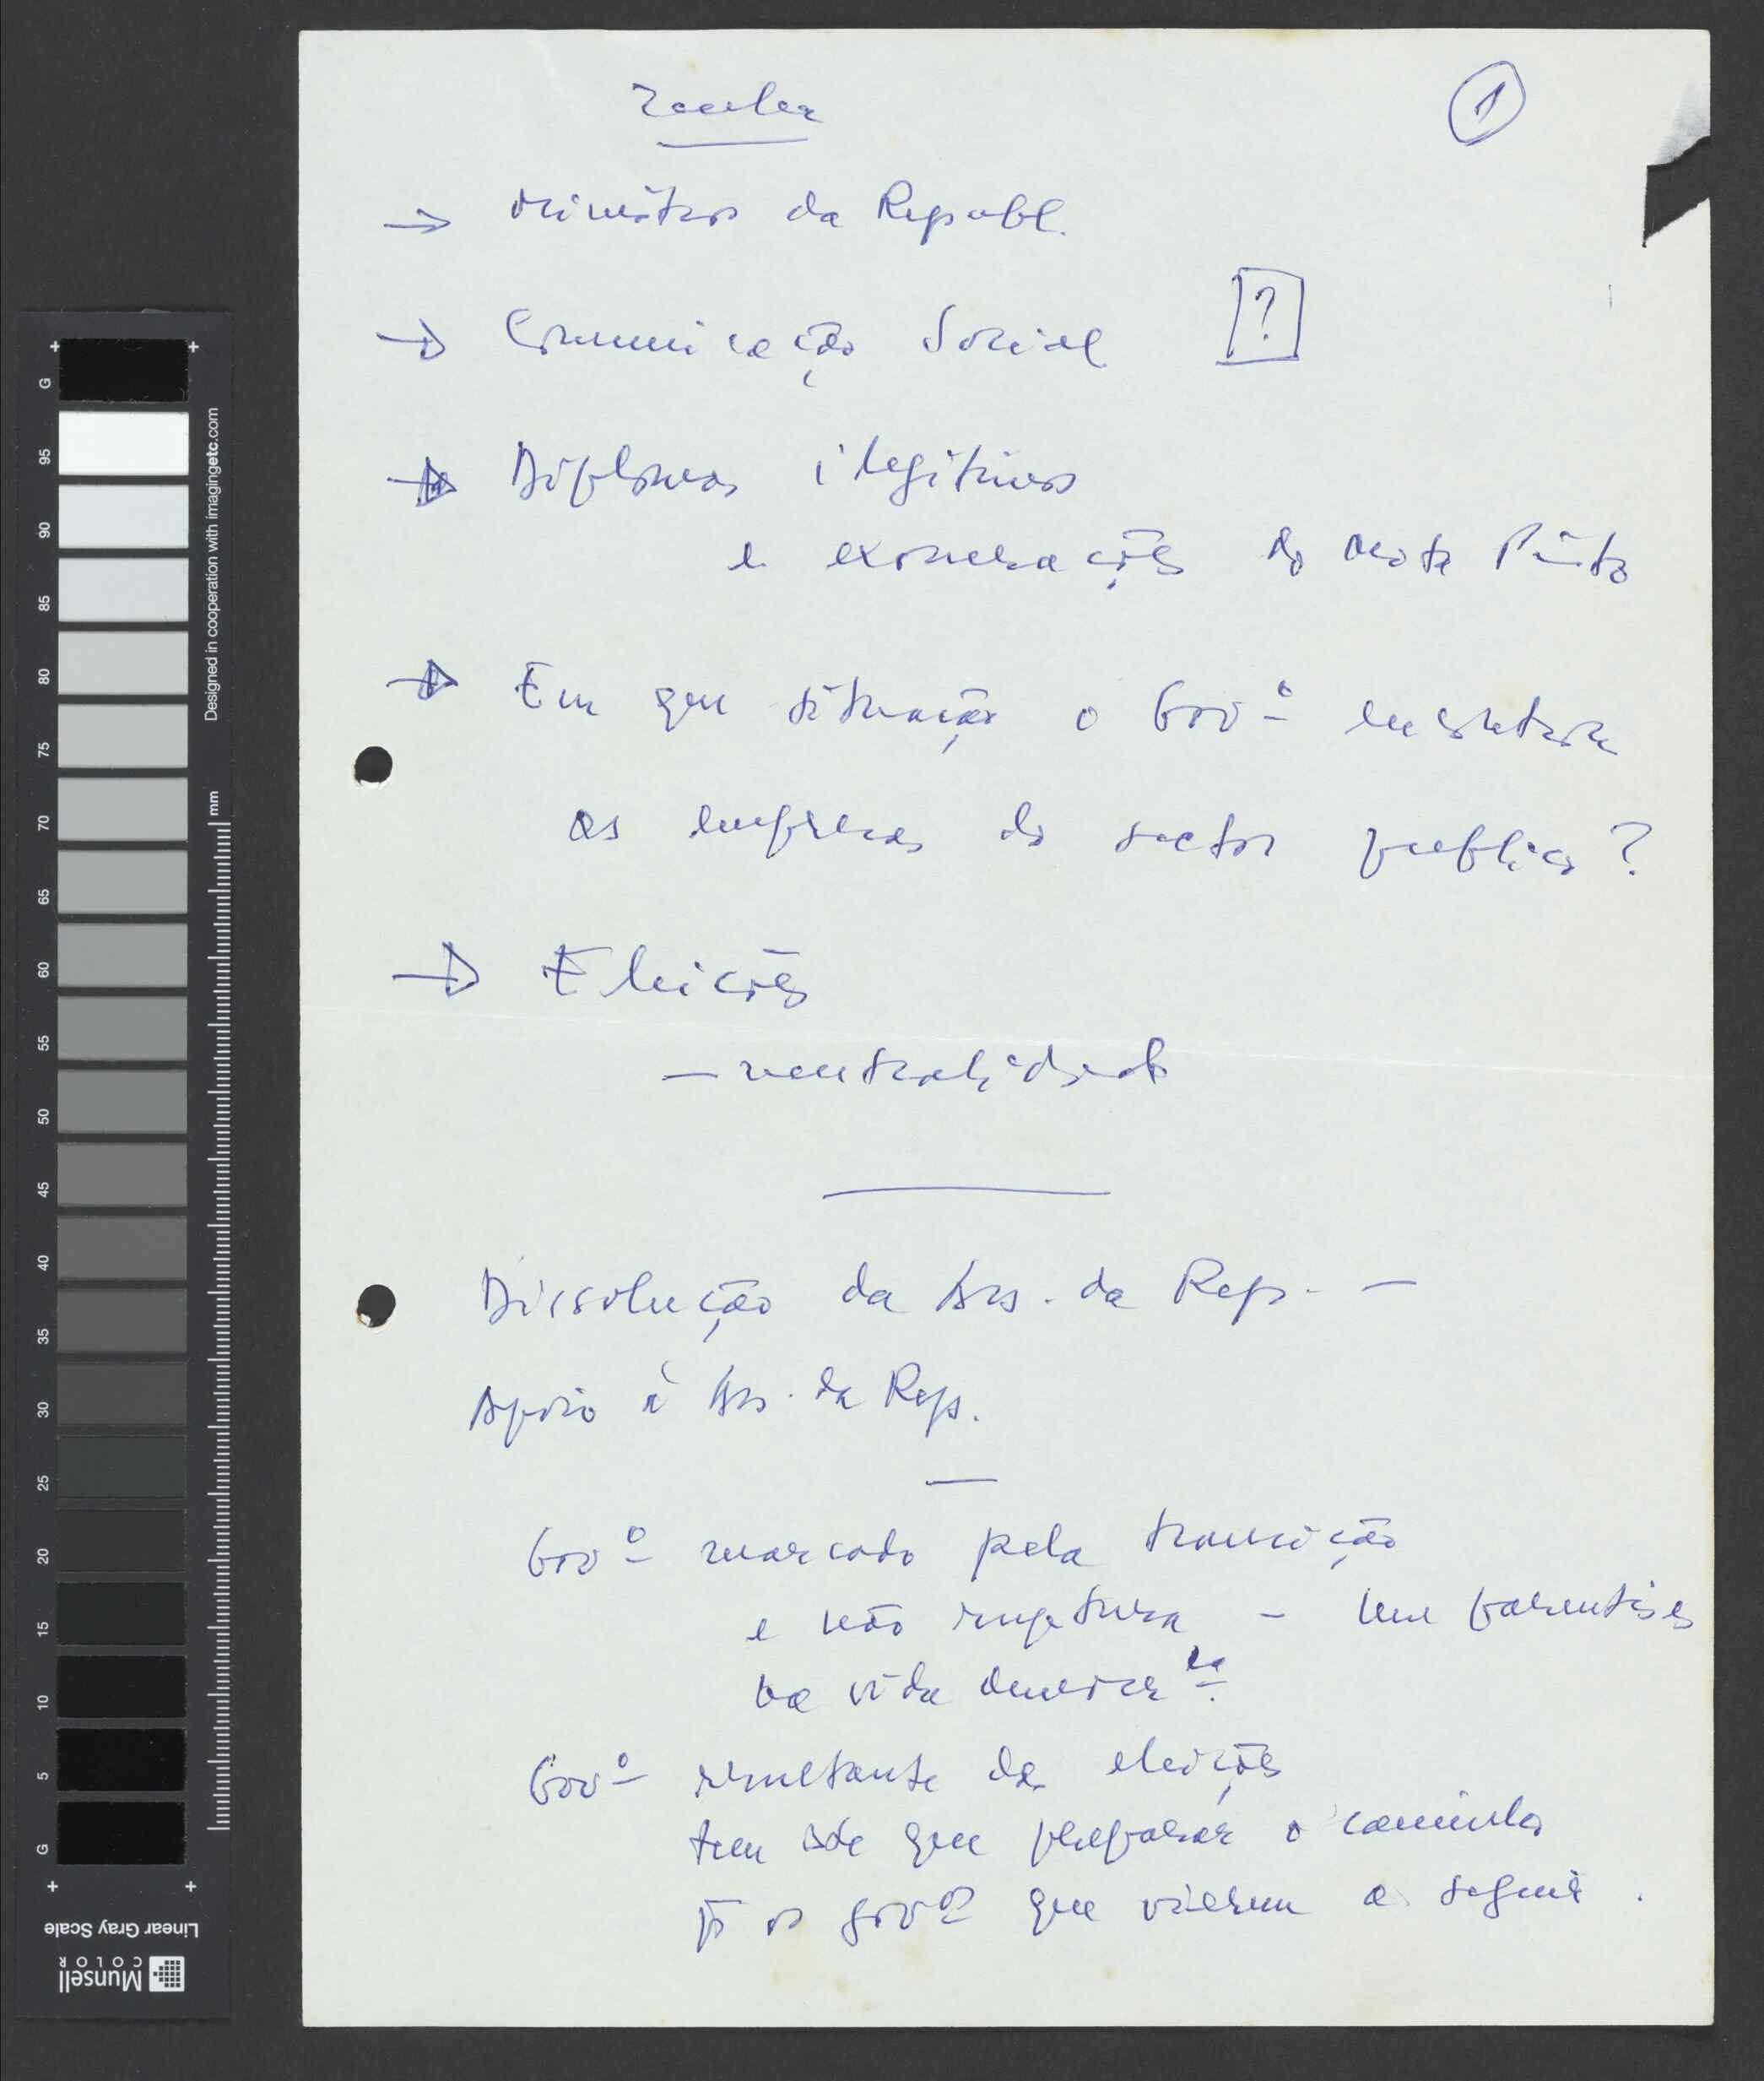 Zenha
①
→ Ministros da Republ.
→ Comunicação Social [?]
→ Diplomas ilegítimos
e exonerações do Mota Pinto
→ Em que situação o Govº encontrará
as empresas do sector publico?
→ Eleições
— neutralidade
Dissolução da Ass. da Rep. —
Apoio à Ass. da Rep.
—
Govº marcado pela transição
e não ruptura – um parentisis
na vida democrᶜᵃ
Govº resultante das eleições
tem de que preparar o caminho
pª os govºˢ que vierem a seguir.
G
95
90
85
80
75
70
65
60
55
50
45
40
35
30
25
20
15
10
5
G
mm
Designed in cooperation with imagingetc.com
Linear Gray Scale
Munsell
COLOR